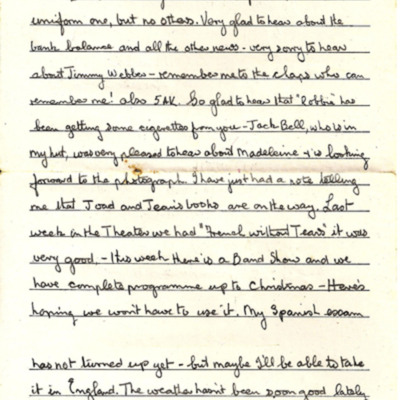 uniform one, but no others. Very glad to hear about the
bank balance and all the other news - very sorry to hear
about Jimmy Webber - remember me to the chaps who can
remember me! also SAK. So glad to hear that "Robbie" has
been getting some cigarettes from you - Jack Bell, who is in
my hut, was very pleased to hear about Madeleine & is looking
forward to the photograph. I have just had a note telling
me that Joad and Jeans books are on the way. Last
week in the Theatre we had "French without Tears" it was
very good. - This week there is a Band Show and we
have complete programme up to Christmas - Here's
hoping we won't have to use it. My Spanish exam
has not turned up yet - but maybe I'll be able to take
it in England. The weather hasn't been so good lately